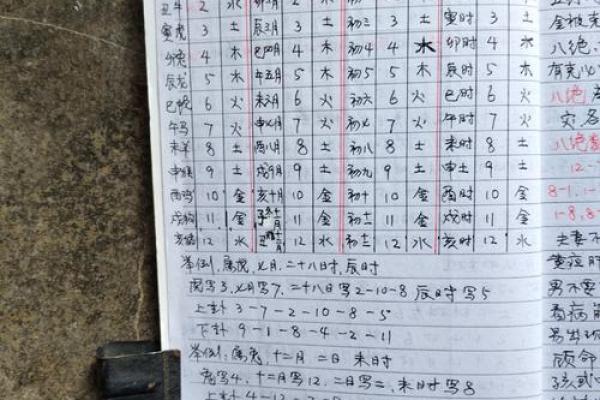 丑牛 2 水 卯二月 2 水 初二 2 水 丑时 2 水
寅虎 3 土 辰三月 3 土 初三 3 土 寅时 3 土
卯兔 4 木 巳四月 4 木 初4 4 木 卯时 4 木
辰龙 5 木 午五月 5 木 初5 5 木 辰时 5 木
巳蛇 6 火 未六月 6 火 初六 6 火 巳时 6 火
午马 7 火 申七月 7 火 初七 7 火 午时 7 火
未羊 8 土 酉八月 8 土 初八 8 土 未时 8 土
申猴 9 土 戌9月 9 土 初九 9 土 申土 9 土
酉鸡 10 金 亥十月 10 金 初十 10 金 酉时 10 金
戌狗 11 金 子十一月 11 金 初十一 11 金 戌时 11 金
亥猪 12 水 丑十二月 12 水 初十二 12 水 亥时 12 水
举例,属虎,七月,二十八日时,辰时
虎写3,七月写7,二十八日写2-10-8 辰时写5
上卦 3-7-2-10-8-5
下卦 9-1-8-4-2-11
举例,属兔,十二月 二日 未时
兔写4,十二月写12,二日写二,未时写8
上卦 4-12-2-8
金被克
八绝,
有克必
八绝
灾,各
八绝
12-
8-1,1-
1-8,8-
夫妻不
男不要
看病
易出现
顾命